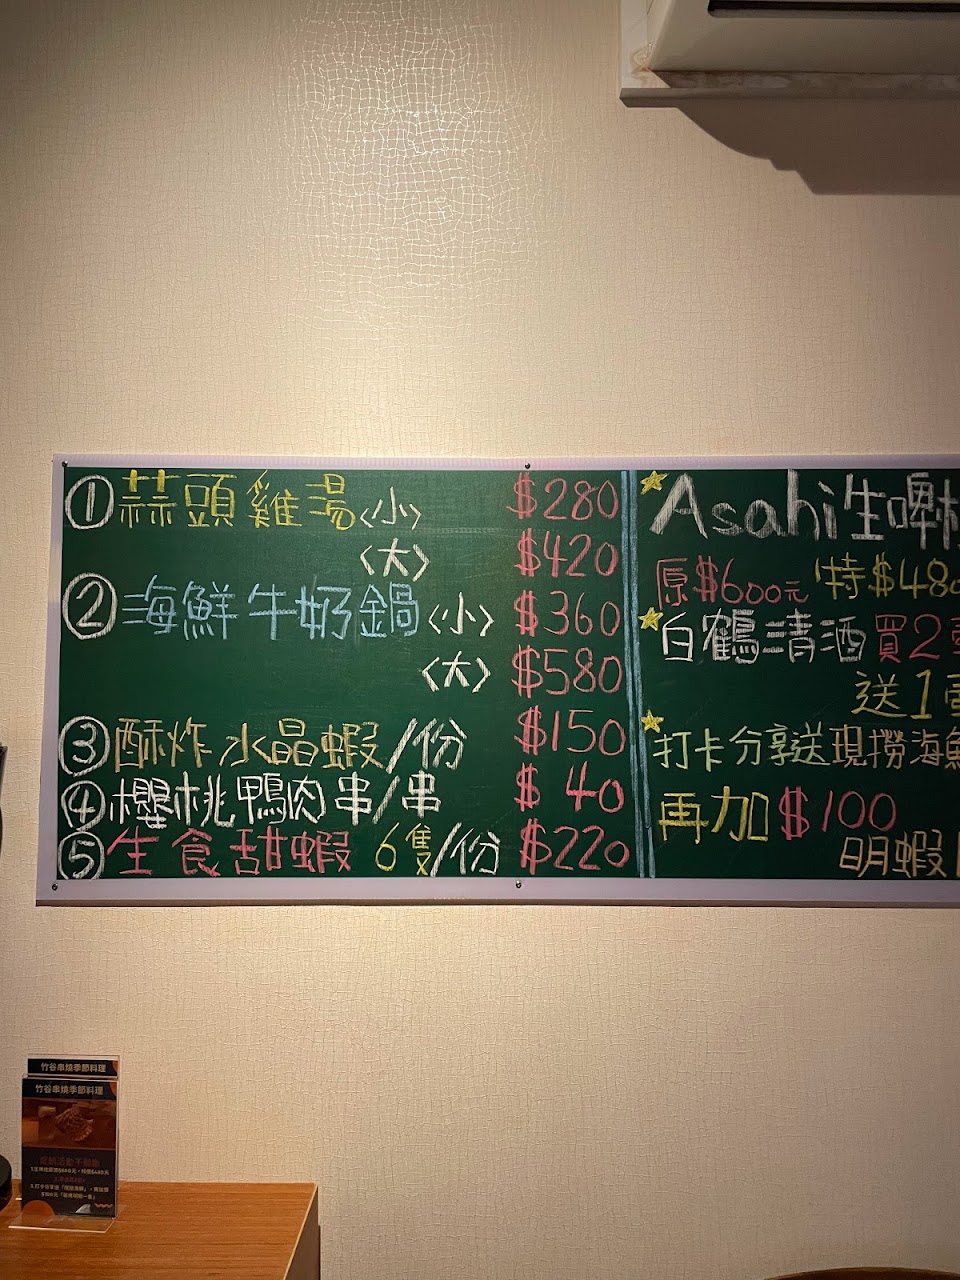 ①蒜頭雞湯<小> $280
<大> $420
②海鮮牛奶鍋<小> $360
<大> $580
③酥炸水晶蝦/份 $150
④櫻桃鴨肉串/串 $40
⑤生食甜蝦 6隻/份 $220
Asahi生啤
原$600元 特$480
白鶴清酒買2
送1
打卡分享送現撈海
再加$100
明蝦
竹谷串燒季節料理
竹谷串燒季節料理